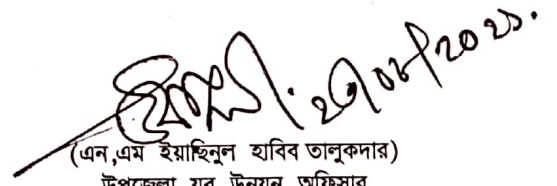 ২৩/০৮/২০২১.
(এন,এম ইয়াছিনুল হাবিব তালুকদার)
উপজেলা যুব উন্নয়ন অফিসার